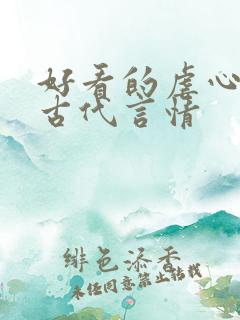 好看的虐心
古代言情
绯色添香
未经同意禁止转载